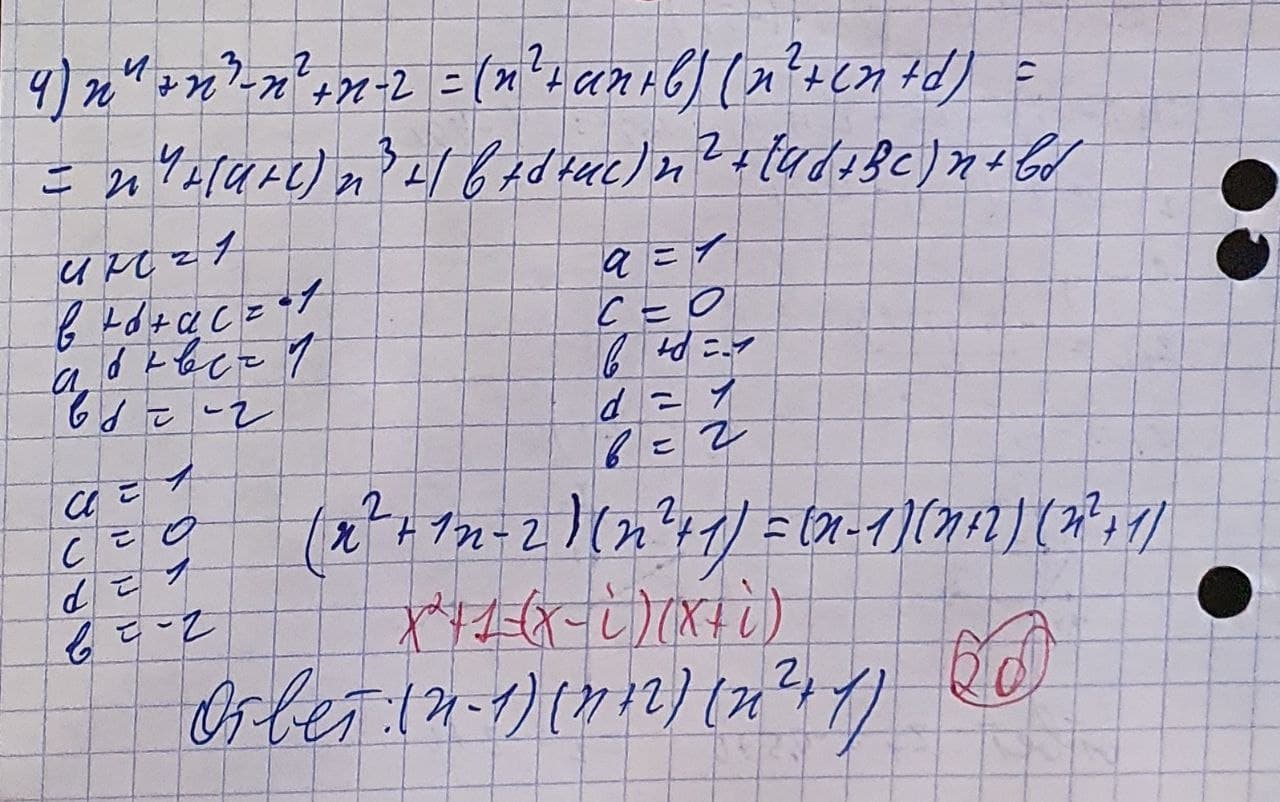 4) x⁴+x³-x²+x-2 = (x²+ax+в)(x²+cx+d) =
= x⁴+(a+c)x³+(в+d+ac)x²+(ad+вc)x+вd
a+c=1
в+d+ac=-1
ad+вc=1
вd=-2
a=1
c=0
в+d=-1
d=1
в=2
a=1
c=0
d=1
в=-2
(x²+1x-2)(x²+1)=(x-1)(x+2)(x²+1)
x²+1=(x-i)(x+i)
Ответ:(x-1)(x+2)(x²+1)